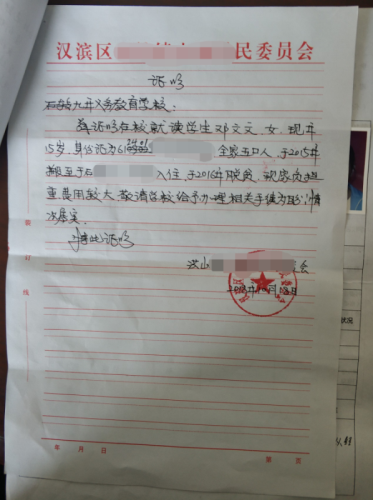 汉滨区 民委员会
证明
九年义务教育学校:
兹证明在校就读学生邓文文,女,现年
15岁,身份证为61 全家五口人,于2015年
搬至于石 入住,于2016年脱贫,现家庭担
重费用较大,敬请学校给予办理相关手续为盼,情
况属实。
特此证明
会
年 月 日
装
订
线
年 月 日
第 页